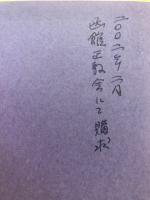 二〇〇二年二月
函館正教会にて購求